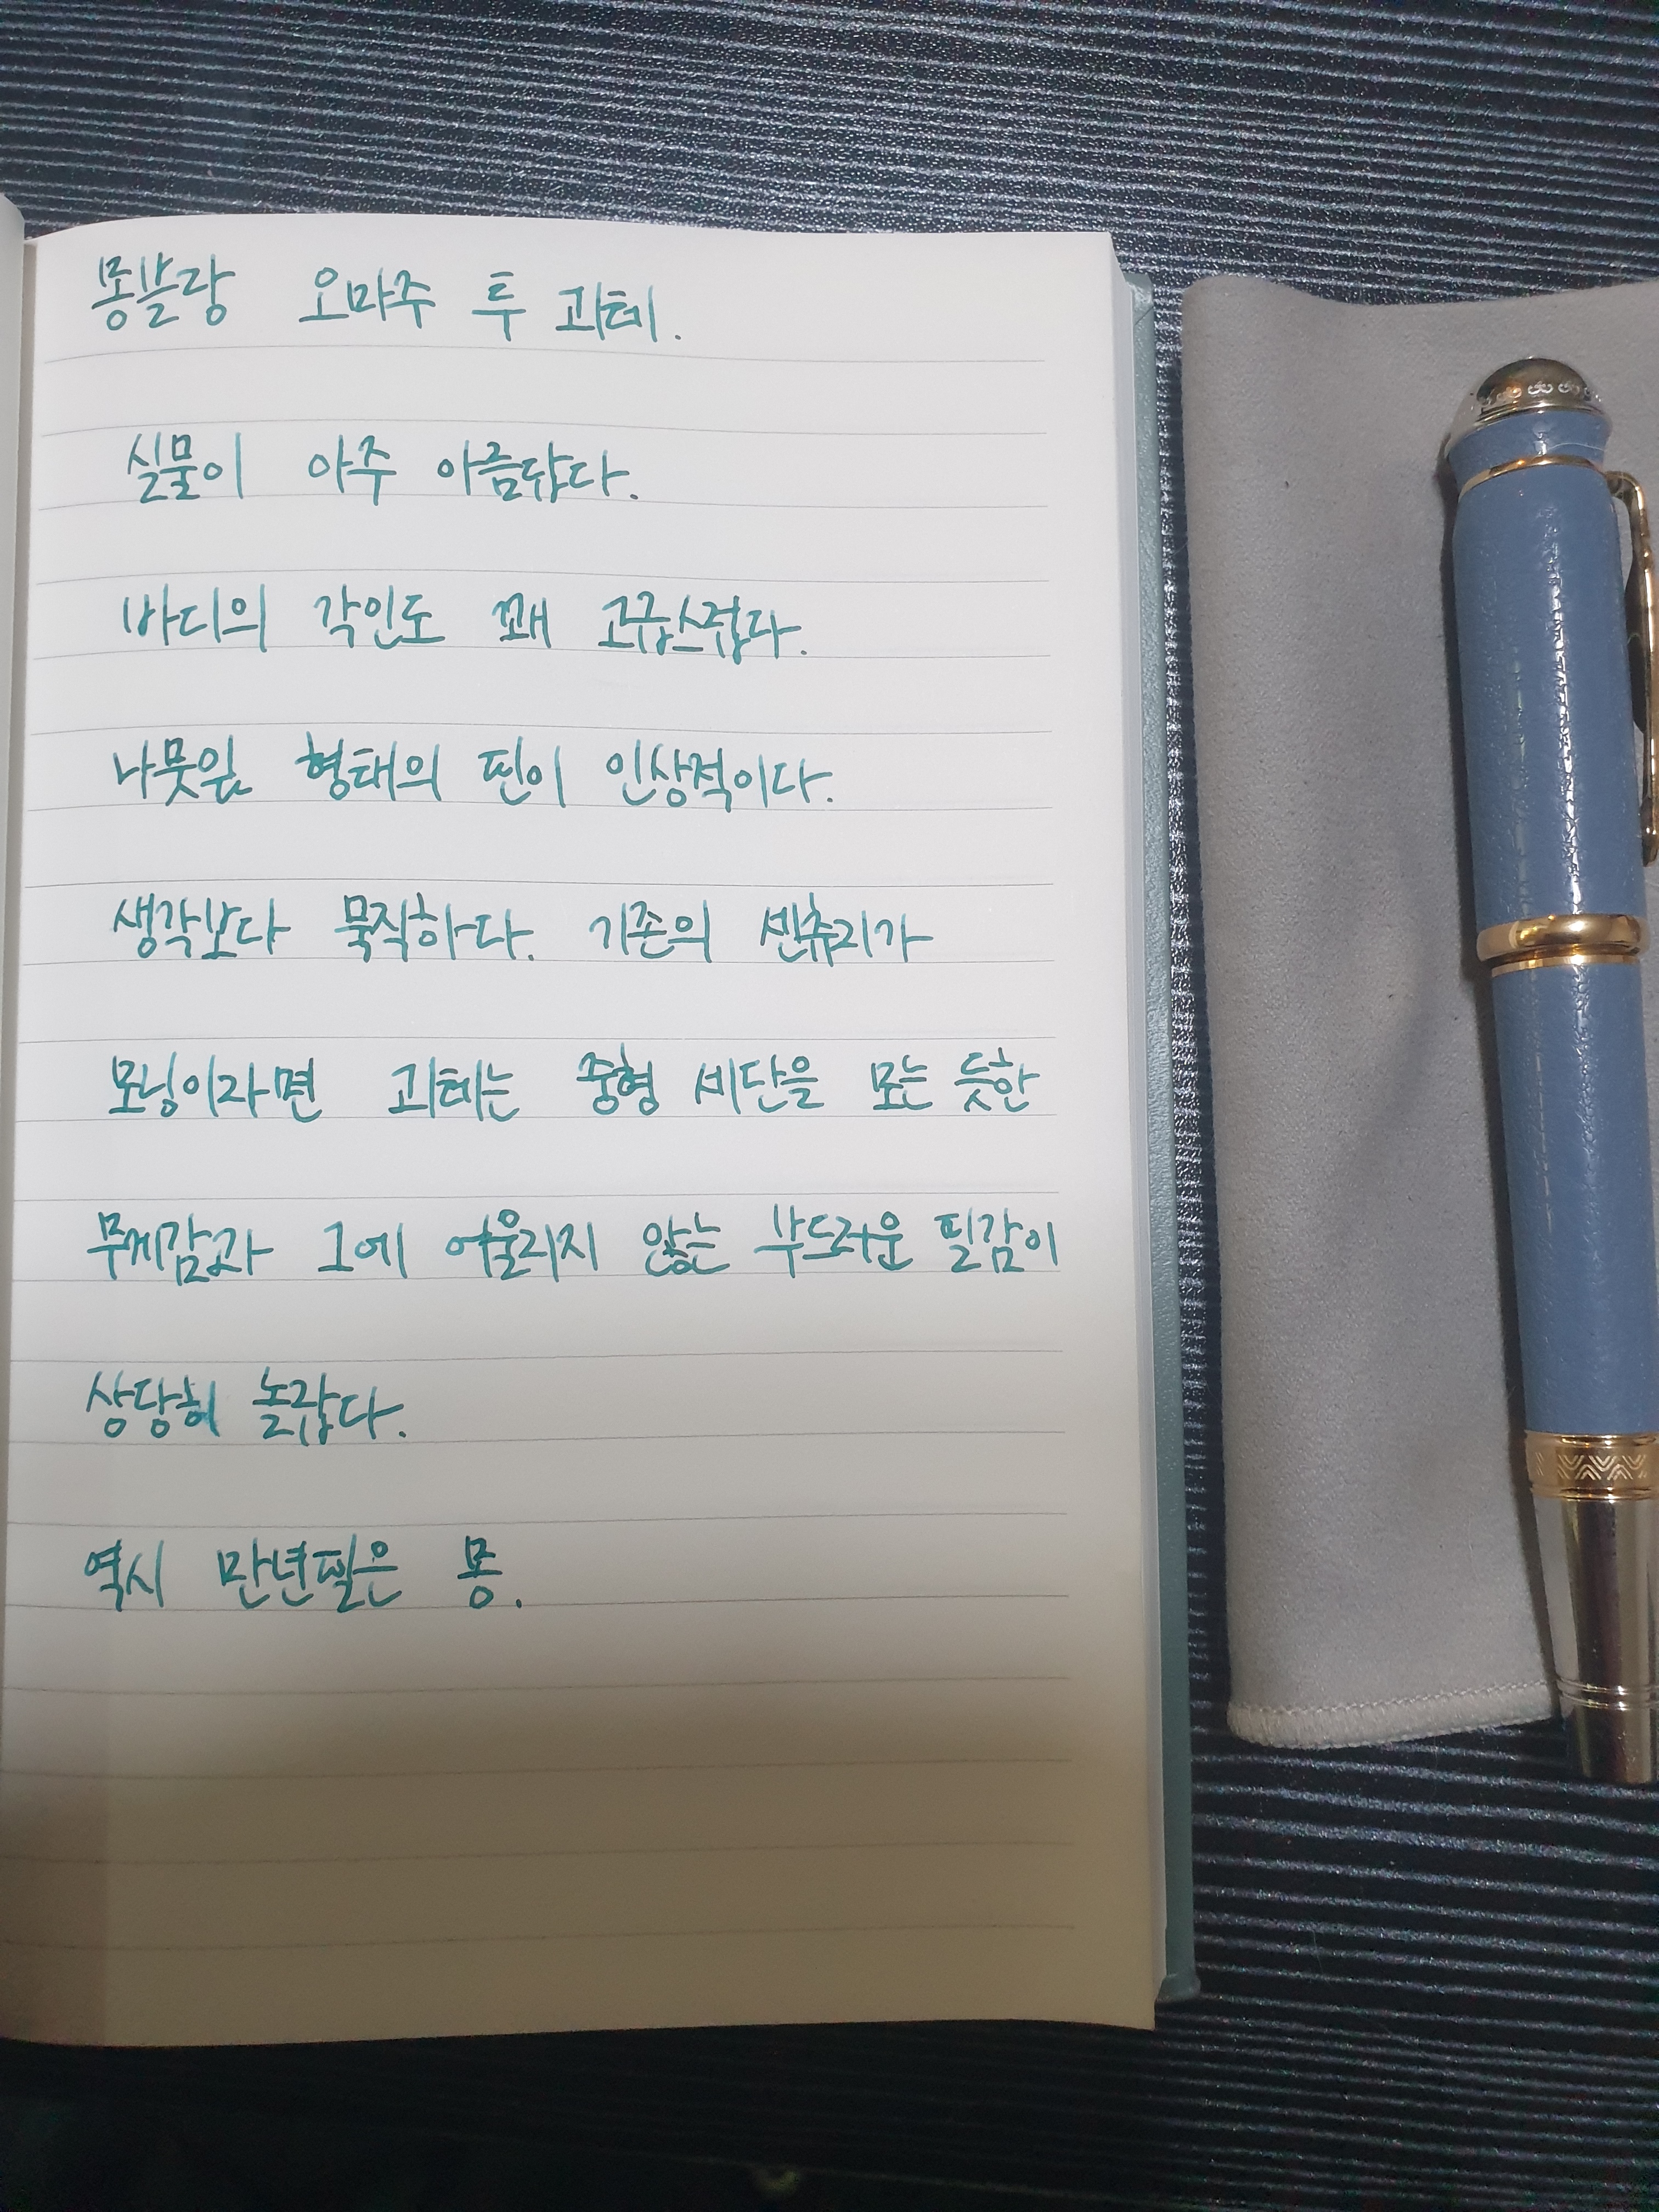 몽블랑 오마주 투 괴테.
실물이 아주 아름답다.
바디의 각인도 꽤 고급스럽다.
나뭇잎 형태의 핀이 인상적이다.
생각보다 묵직하다. 기존의 센츄리가
모닝이라면 괴테는 중형 세단을 모는 듯한
무게감과 그에 어울리지 않는 부드러운 필감이
상당히 놀랍다.
역시 만년필은 몽.